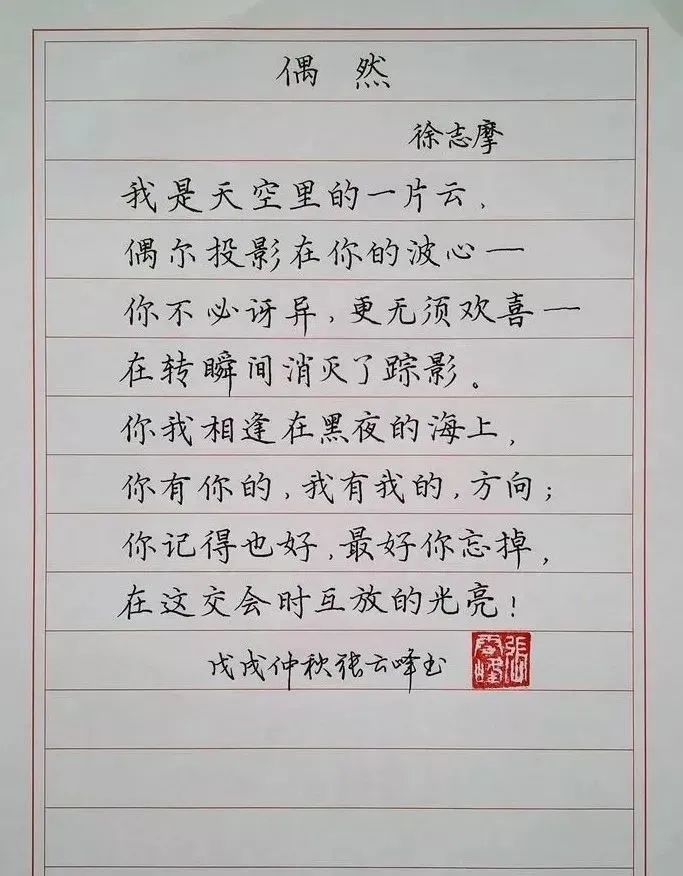 偶然
徐志摩
我是天空里的一片云、
偶尔投影在你的波心一
你不必讶异,更无须欢喜一
在转瞬间消灭了踪影。
你我相逢在黑夜的海上,
你有你的,我有我的,方向;
你记得也好,最好你忘掉,
在这交会时互放的光亮!
戊戌仲秋张云峰书
张云峰